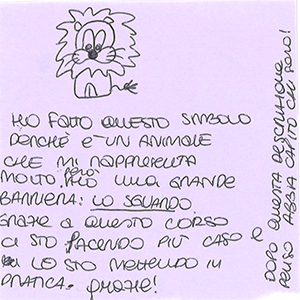 HO FATTO QUESTO SIMBOLO
PERCHÈ È UN ANIMALE
CHE MI RAPPRESENTA
MOLTO, PERÒ HO UNA GRANDE
BARRIERA: LO SGUARDO.
GRAZIE A QUESTO CORSO
CI STO FACENDO PIÙ CASO E
LO STO METTENDO IN
PRATICA. GRAZIE!
DOPO QUESTA DESCRIZIONE
PENSO ABBIA CAPITO CHI SONO!